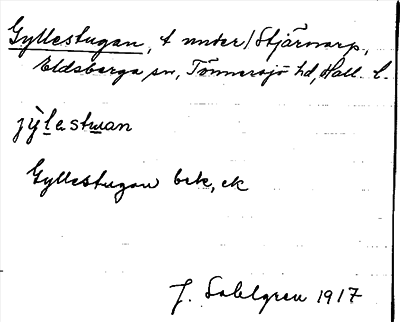 Gyllestugan, t under Stjärnarp,
Eldsberga sn, Tönnersjö hd, Hall. l.
jỳlestɯan
Gyllestugan bek, ek
J. Sahlgren 1917